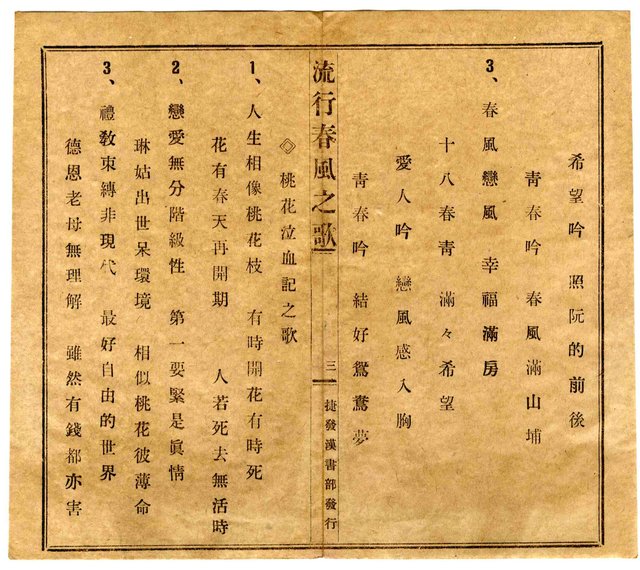 希望吟 照阮的前後
青春吟 春風滿山埔
3、春風戀風 幸福滿房
十八春青 滿々希望
愛人吟 戀風感入胸
青春吟 結好鴛鴦夢
流行春風之歌 三 捷發漢書部發行
◇桃花泣血記之歌
1、人生相像桃花枝 有時開花有時死
花有春天再開期 人若死去無活時
2、戀愛無分階級性 第一要緊是眞情
琳姑出世呆環境 相似桃花彼薄命
3、禮敎束縛非現代 最好自由的世界
德恩老母無理解 雖然有錢都亦害